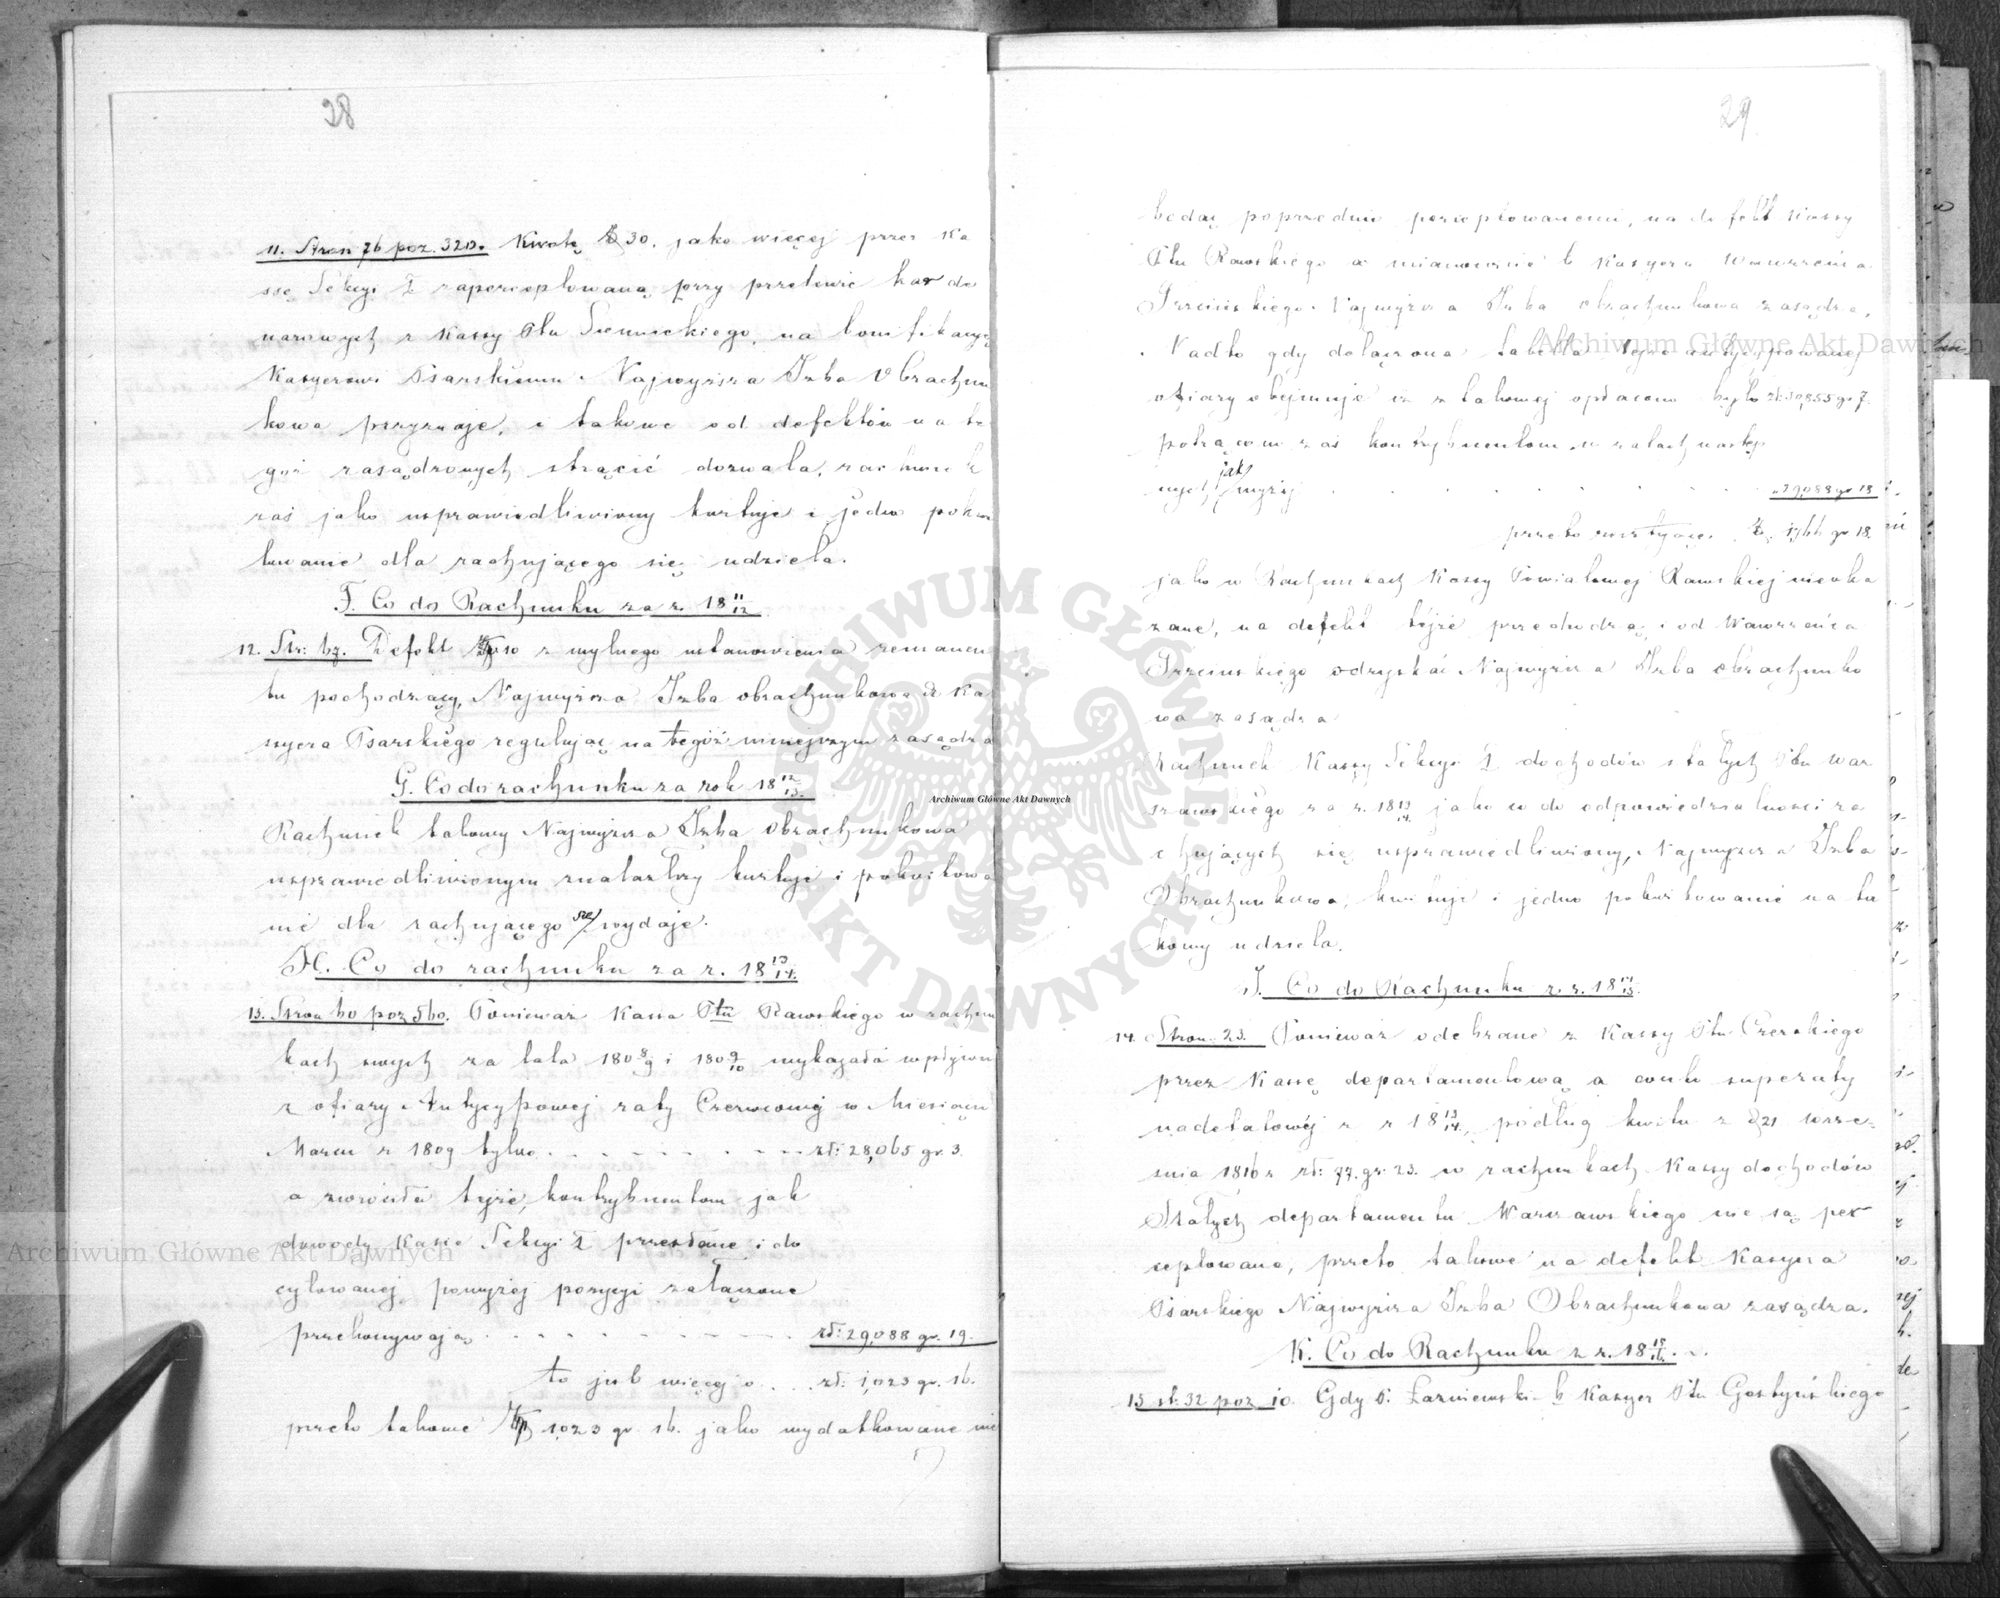 28
11. Stron 76 poz. 320. Kwotę 30. jako więcej przez Ka
ssę Sekcyi I zapercepłowaną przy przelewie
z Kassy Ptu Siennickiego, na bonifikacyą
Kassyerowi Psarskiemu Najwyższa Izba Obrachun
kowa przyznaje, i takowe od defektów na te
goż zasądzonych strącić dozwala, rachunek
zaś jako usprawiedliwiony kwituje i jedno pokwi
towanie dla rachującego się udziela.
F. Co do Rachunku za r. 18 11/12
12. Str: 67. Defekt z mylnego ustanowienia remanen
tu pochodzący, Najwyższa Izba obrachunkowa z Ka
ssyera Psarskiego regulując na tegoż niniejszym zasądza
G. Co do rachunku za rok 18 12/13.
Rachunek takowy Najwyższa Izba Obrachunkowa
usprawiedliwionym znalazłszy kwituje i pokwitowa
nie dla rachującego się wydaje.
H. Co do rachunku za r. 18 13/14.
13. Stron 60 poz 560. Ponieważ Kassa Ptu Rawskiego w rachun
kach swych za lata 180 8/9 i 180 9/10 wykazała wpływu
z ofiary Antycypowej raty Czerwcowej w Miesiącu
Marcu r 1809 tylko . . . . . . . . złt: 28,065 gr. 3.
a zwróciła tejże, kontrybuentom jak
dowody Kassie Sekcyi I przesłane i do
cytowanej powyżej pozycyi załączone
przekonywają . . . . . . . . złt: 29,088 gr. 19.
to jest więcej o . . . złt: 1,023 gr. 16.
przeto takowe 1023 gr. 16. jako wydatkowane nie
29
będąc poprzednio percepłowanemi, na defekt Kassy
Ptu Rawskiego a mianowicie b Kasyera Wawrzeńca
Trzcińskiego Najwyższa Izba obrachunkowa zasądza,
Nadto gdy dołączona tabella tejże antycypowanej
ofiary obejmuje iż z takowej opłacono było zł: 30,855 gr 7.
potrącono zaś kontrybuentom w ratach następ
nych, jak wyżej . . . . . . . . 29,088 gr 19
przeto resztujące . 1766 gr 18.
jako w Rachunkach Kassy Powiatowej Rawskiej nieoka
zane, na defekt tejże przechodzą i od Wawrzeńca
Trzcińskiego odzyskać Najwyższa Izba obrachunko
wa zasądza
Rachunek Kassy Sekcyi I dochodów stałych Ptu War
szawskiego za r. 18 13/14. jako co do odpowiedzialności ra
chujących się usprawiedliwiony, Najwyższa Izba
Obrachunkowa, kwituje i jedno pokwitowanie na ta
kowy udziela.
J. Co do Rachunku z r. 18 14/15.
14. Stron 23. Ponieważ odebrane z Kassy Ptu Czerskiego
przez Kassę departamentową a conto superaty
nadetatowéj z r 18 13/14., podług kwitu z d 21 wrze-
śnia 1816 r złt: 77. gr. 23. w rachunkach Kassy dochodów
Stałych departamentu Warszawskiego nie są per
cepłowane, przeto takowe na defekt Kasyera
Psarskiego Najwyższa Izba Obrachunkowa zasądza.
K. Co do Rachunku z r. 18 15/16.
15 st: 32 poz 10. Gdy P. b Kasyer Ptu Gostyńskiego
Archiwum Główne Akt Dawnych
Archiwum Główne Akt Dawnych
Archiwum Główne Akt Dawnych
ARCHIWUM GŁÓWNE AKT DAWNYCH